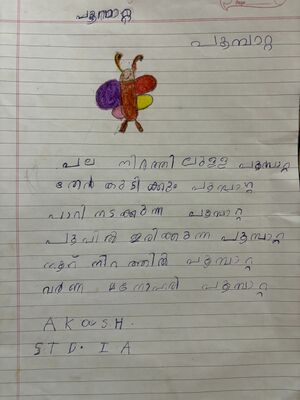 പൂമ്പാറ്റ
പൂമ്പാറ്റ
പല നിറത്തിലുള്ള പൂമ്പാറ്റ
തേൻ കുടിക്കും പൂമ്പാറ്റ
പാറി നടക്കുന്ന പൂമ്പാറ്റ
പൂവിൽ ഇരിക്കുന്ന പൂമ്പാറ്റ
നിറത്തിൽ പൂമ്പാറ്റ
വർണ മനോഹരി പൂമ്പാറ്റ
AKaSH.
STD. I A